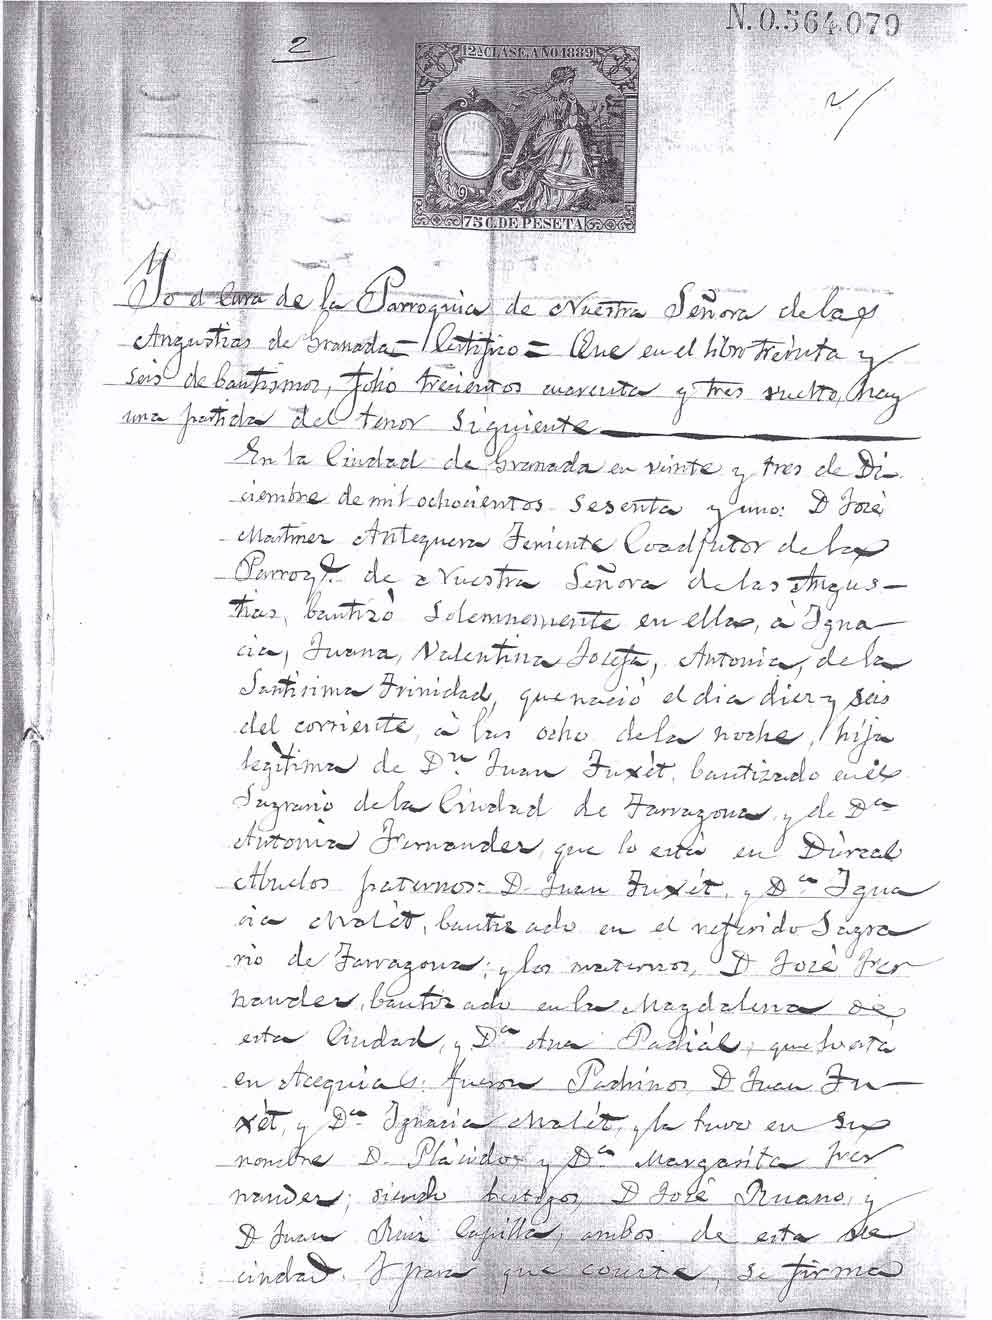 N. 0.564.079
2
12ª CLASE. AÑO 1889
2/
75 C. DE PESETA
Yo el Cura de la Parroquia de Nuestra Señora de las
Angustias de Granada = Certifico = Que en el libro treinta y
seis de bautismos, folio trecientos cuarenta y tres vuelto, hay
una partida del tenor siguiente
En la Ciudad de Granada en veinte y tres de Di
ciembre de mil ochocientos sesenta y uno: D José
Martinez Antequera Teniente Coadjutor de la
Parroq.ª de Nuestra Señora de las Angus-
tias, bautizó solemnemente en ella, à Igna-
cia, Juana, Valentina Josefa, Antonia, de la
Santisima Trinidad, que nació el dia diez y seis
del corriente, à las ocho de la noche, hija
legìtima de Dn. Juan Fuxét, bautizado en el
Sagrario de la Ciudad de Tarragona, y de Dª
Antonia Fernandez, que lo està en Dúrcal
Abuelos paternos = D. Juan Fuxét, y Dª Igna
cia Malét, bautizado en el referido Sagra
rio de Tarragona; y los maternos, D José Fer
nandez, bautizado en la Magdalena de
esta Ciudad, y Dª Ana Padiál, que lo està
en Acequias: fueron Padrinos D Juan Fu-
xét, y Dª Ignacia Malét, y la tuvo en su
nombre D. Plácido y Dª Margarita Fer
nandez; siendo testigos, D José Ruano, y
D Juan Ruiz Capilla, ambos de esta ve
cindad. Y para que conste, se firma